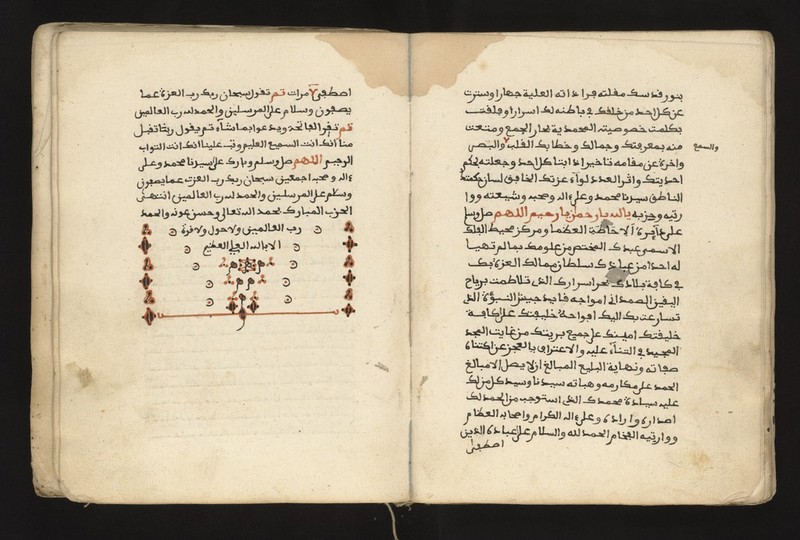 بنور قدسك مقلته فراء ذاته العلية جهارا وسترت
عن كل احد من خلقك في باطنه لك اسرارا وفلقت
بكلمت خصوصيته المحمدية بحار الجمع ومتعت
منه بمعرفتك وجمالك وخطابك القلب والبصر
والسمع
واخرة عن مقامه تاخيرا ذاتيا كل احد وجعلته بحكم
احديتك واتر العدد لواء عزتك الخافق لسان حكمتك
الناطق سيدنا محمد وعلى ءاله وصحبه وشيعته ووا
رثيه وحزبه يالله يا رحمن يا رحيم اللهم صل وسلم
على دآئرة الاحاطة العظما ومركز محيط الفلك
الاسمى عبدك المختص من علومك بما لم تهيا
له احدا من عبادك سلطان ممالك العزة بك
في كافة بلادك بحر اسرارك الذي تلاطمت برياح
اليقين الصمداني امواجه قايد جيش النبوة الذي
تسارعت بك اليك افواجه خليفتك على كافة
خليقتك امينك على جميع بريتك من غايت المجد
المجيد في الثناء عليه والاعتراف بالعجز عن اكتناه
صفاته ونهاية البليغ المبالغ ان لا يصل الا مبالغ
الحمد على مكارمه وهباته سيدنا وسيد كل من لك
عليه سيادة محمدك الذي استوجب من الحمد لك
اصداره وايراده وعلى ءاله الكرام واصحابه العظام
ووارثيه الفخام الحمد لله والسلام على عباده الذين
اصطفى
اصطفى ٧ مرات ثم تقول سبحان ربك رب العزة عما
يصفون وسلام على المرسلين والحمد لله رب العالمين
ثم تقرا الفاتحة ويدعوا بما شاء ثم يقول ربنا تقبل
منا انك انت السميع العليم وتب علينا انك انت التواب
الرحيم اللهم صل وسلم وبارك على سيدنا محمد وعلى
ءاله وصحبه اجمعين سبحان ربك رب العزت عما يصفون
وسلم على المرسلين والحمد لله رب العالمين انتهى
الحزب المبارك بحمد الله تعالى وحسن عونه والحمد
رب العالمين ولا حول ولا قوة
الا بالله العلي العظيم
م م م
م م
م